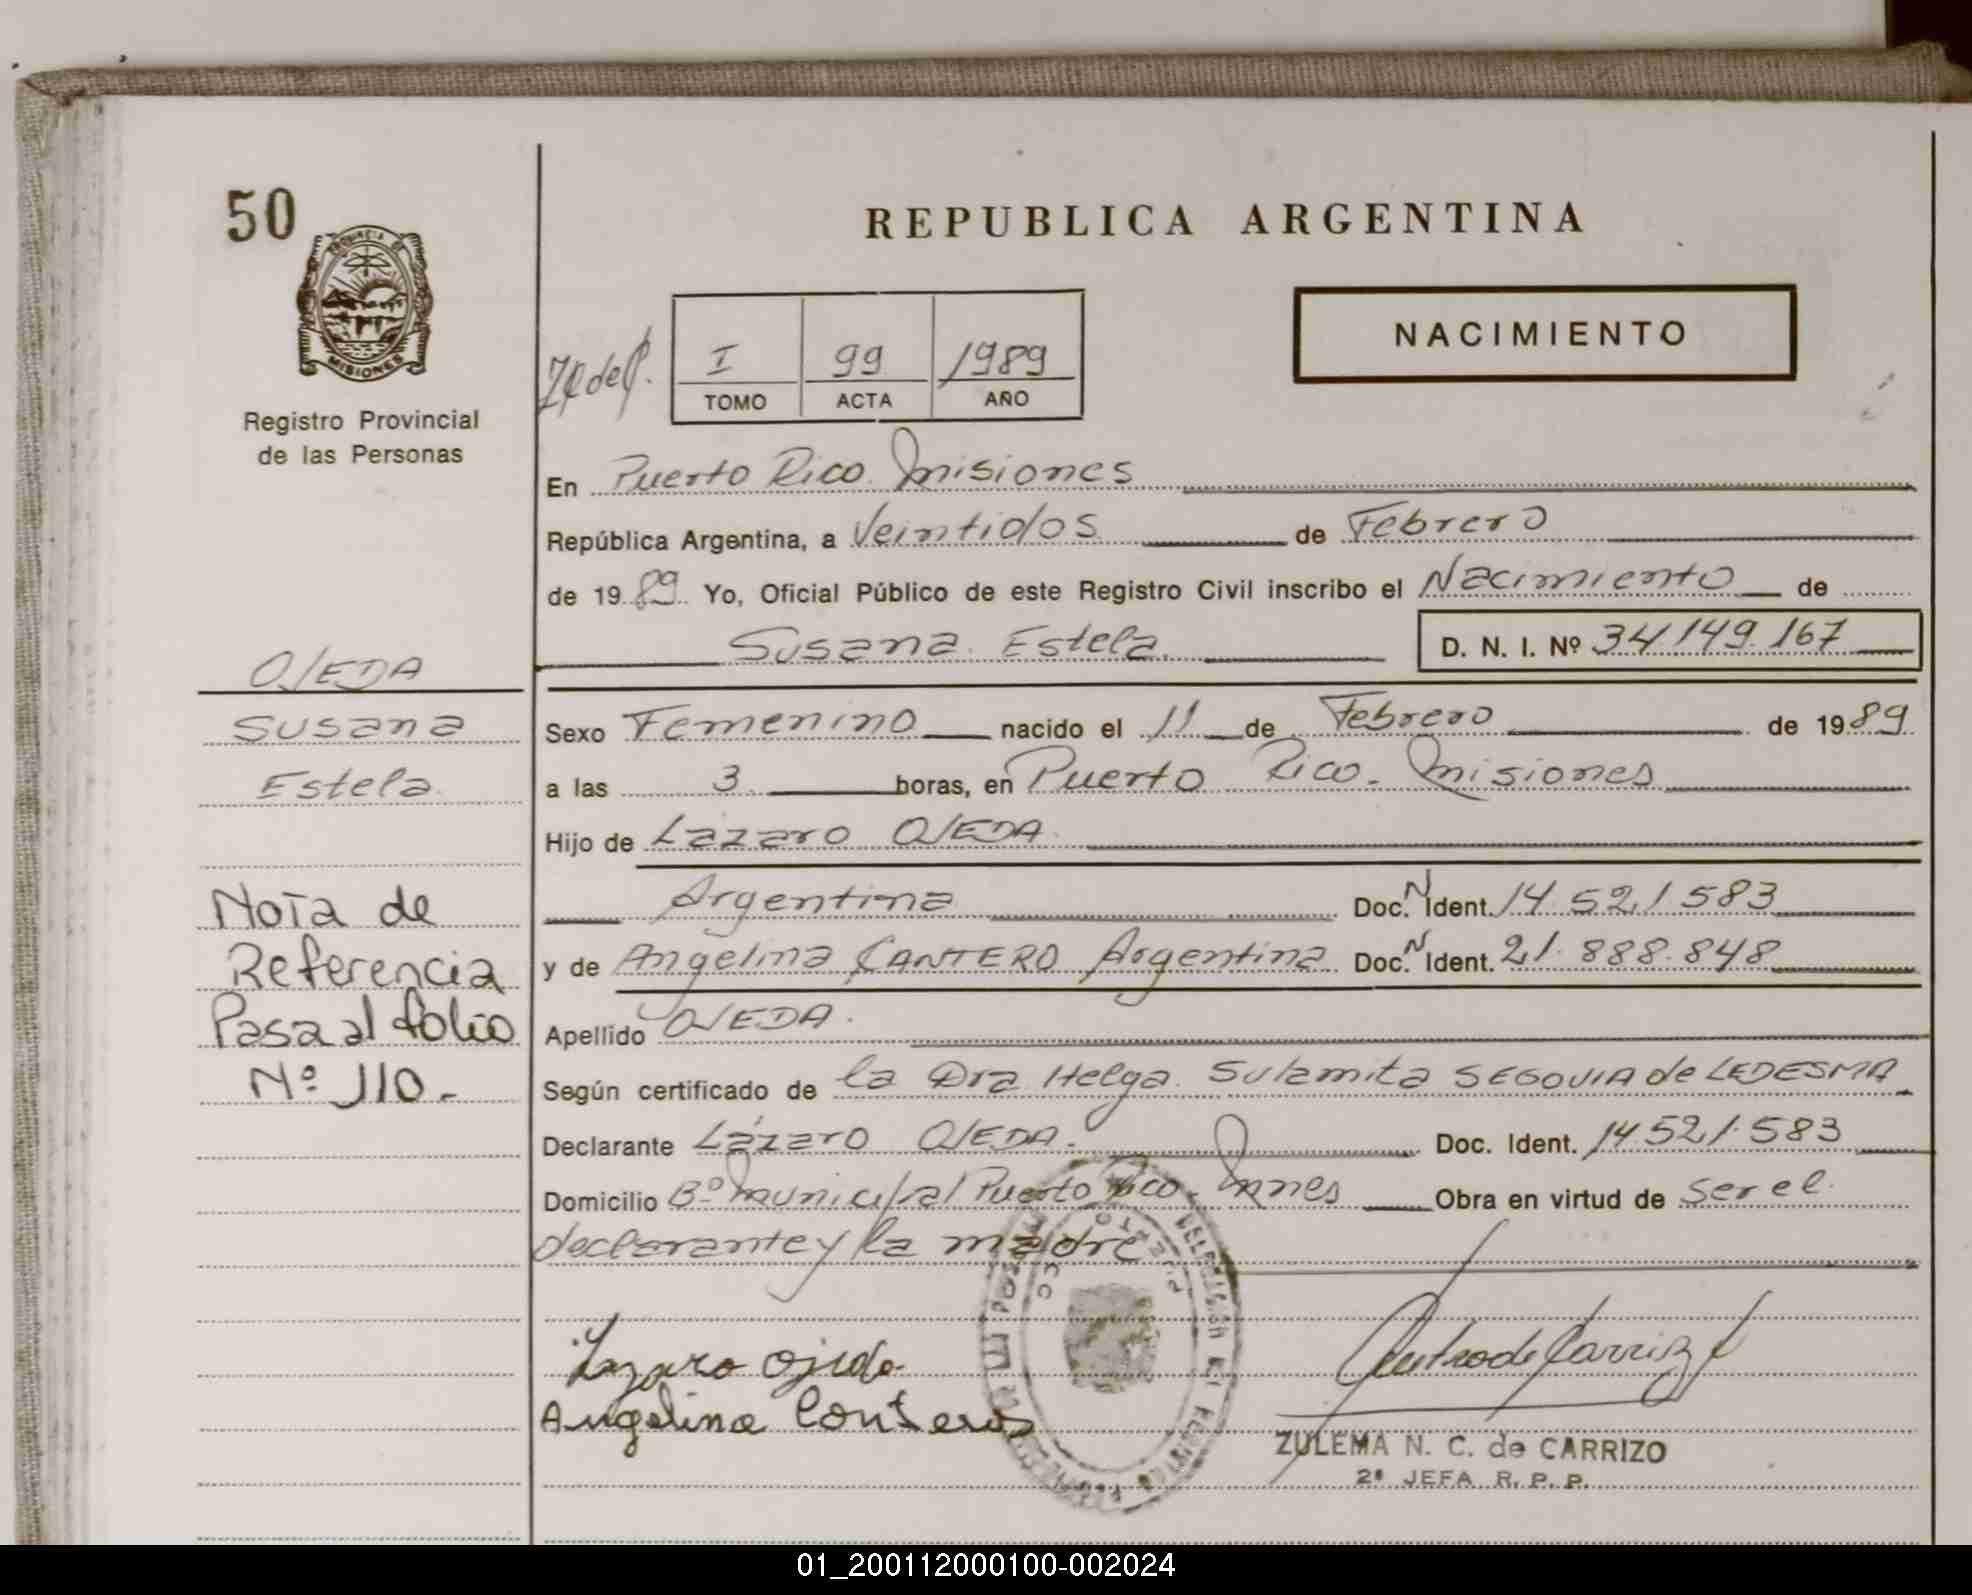 50
PROVINCIA DE
MISIONES
Registro Provincial
de las Personas
REPUBLICA ARGENTINA
NACIMIENTO
I 99 1989
TOMO ACTA AÑO
En Puerto Rico Misiones
República Argentina, a Veintidos de Febrero
de 1989 Yo, Oficial Público de este Registro Civil inscribo el Nacimiento de
Susana Estela D. N. I. Nº 34.149.167
OJEDA
Susana
Estela
Sexo Femenino nacido el 11 de Febrero de 1989
a las 3 horas, en Puerto Rico. Misiones
Hijo de Lázaro OJEDA
Argentina Doc. N Ident. 14.521.583
y de Angelina CANTERO Argentina Doc. N Ident. 21.888.848
Apellido OJEDA.
Nota de
Referencia
Pasa al folio
Nº 110.-
Según certificado de la Dra Helga Sulamita SEGOVIA de LEDESMA
Declarante Lázaro OJEDA. Doc. Ident. 14.521.583
Domicilio Bº Municipal Puerto Rico. Mnes Obra en virtud de ser el
declarante y la madre
Lazaro Ojeda
Angelina Conteros
ZULEMA N. C. de CARRIZO
2ª JEFA R. P. P.
01_200112000100-002024